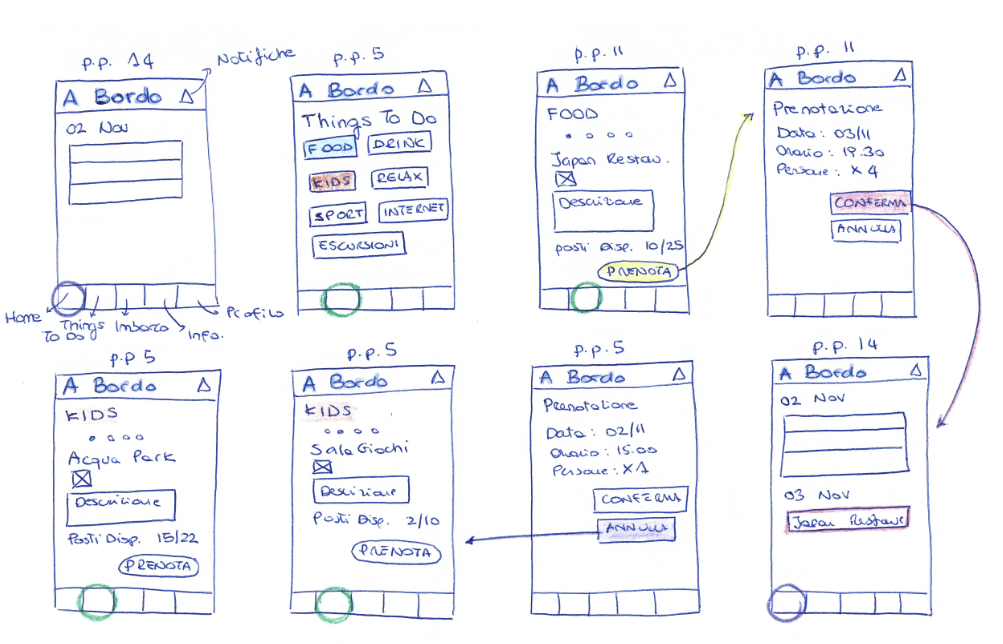 p.p. 14
Notifiche
A Bordo
02 Nov
Home
Things To Do
Imbarco
Info.
Profilo
p.p. 5
A Bordo
Things To Do
FOOD
DRINK
KIDS
RELAX
SPORT
INTERNET
ESCURSIONI
p.p. 11
A Bordo
FOOD
Japan Restau.
Descrizione
posti Disp. 10/25
PRENOTA
p.p. 11
A Bordo
Prenotazione
Data: 03/11
Orario: 19.30
Persone: x 4
CONFERMA
ANNULLA
p.p 5
A Bordo
KIDS
Acqua Park
Descrizione
Posti Disp. 15/22
PRENOTA
p.p.5
A Bordo
KIDS
Sala Giochi
Descrizione
Posti Disp. 2/10
PRENOTA
p.p.5
A Bordo
Prenotazione
Data: 02/11
Orario: 15.00
Persone: x1
CONFERMA
ANNULLA
p.p. 14
A Bordo
02 Nov
03 Nov
Japan Restau